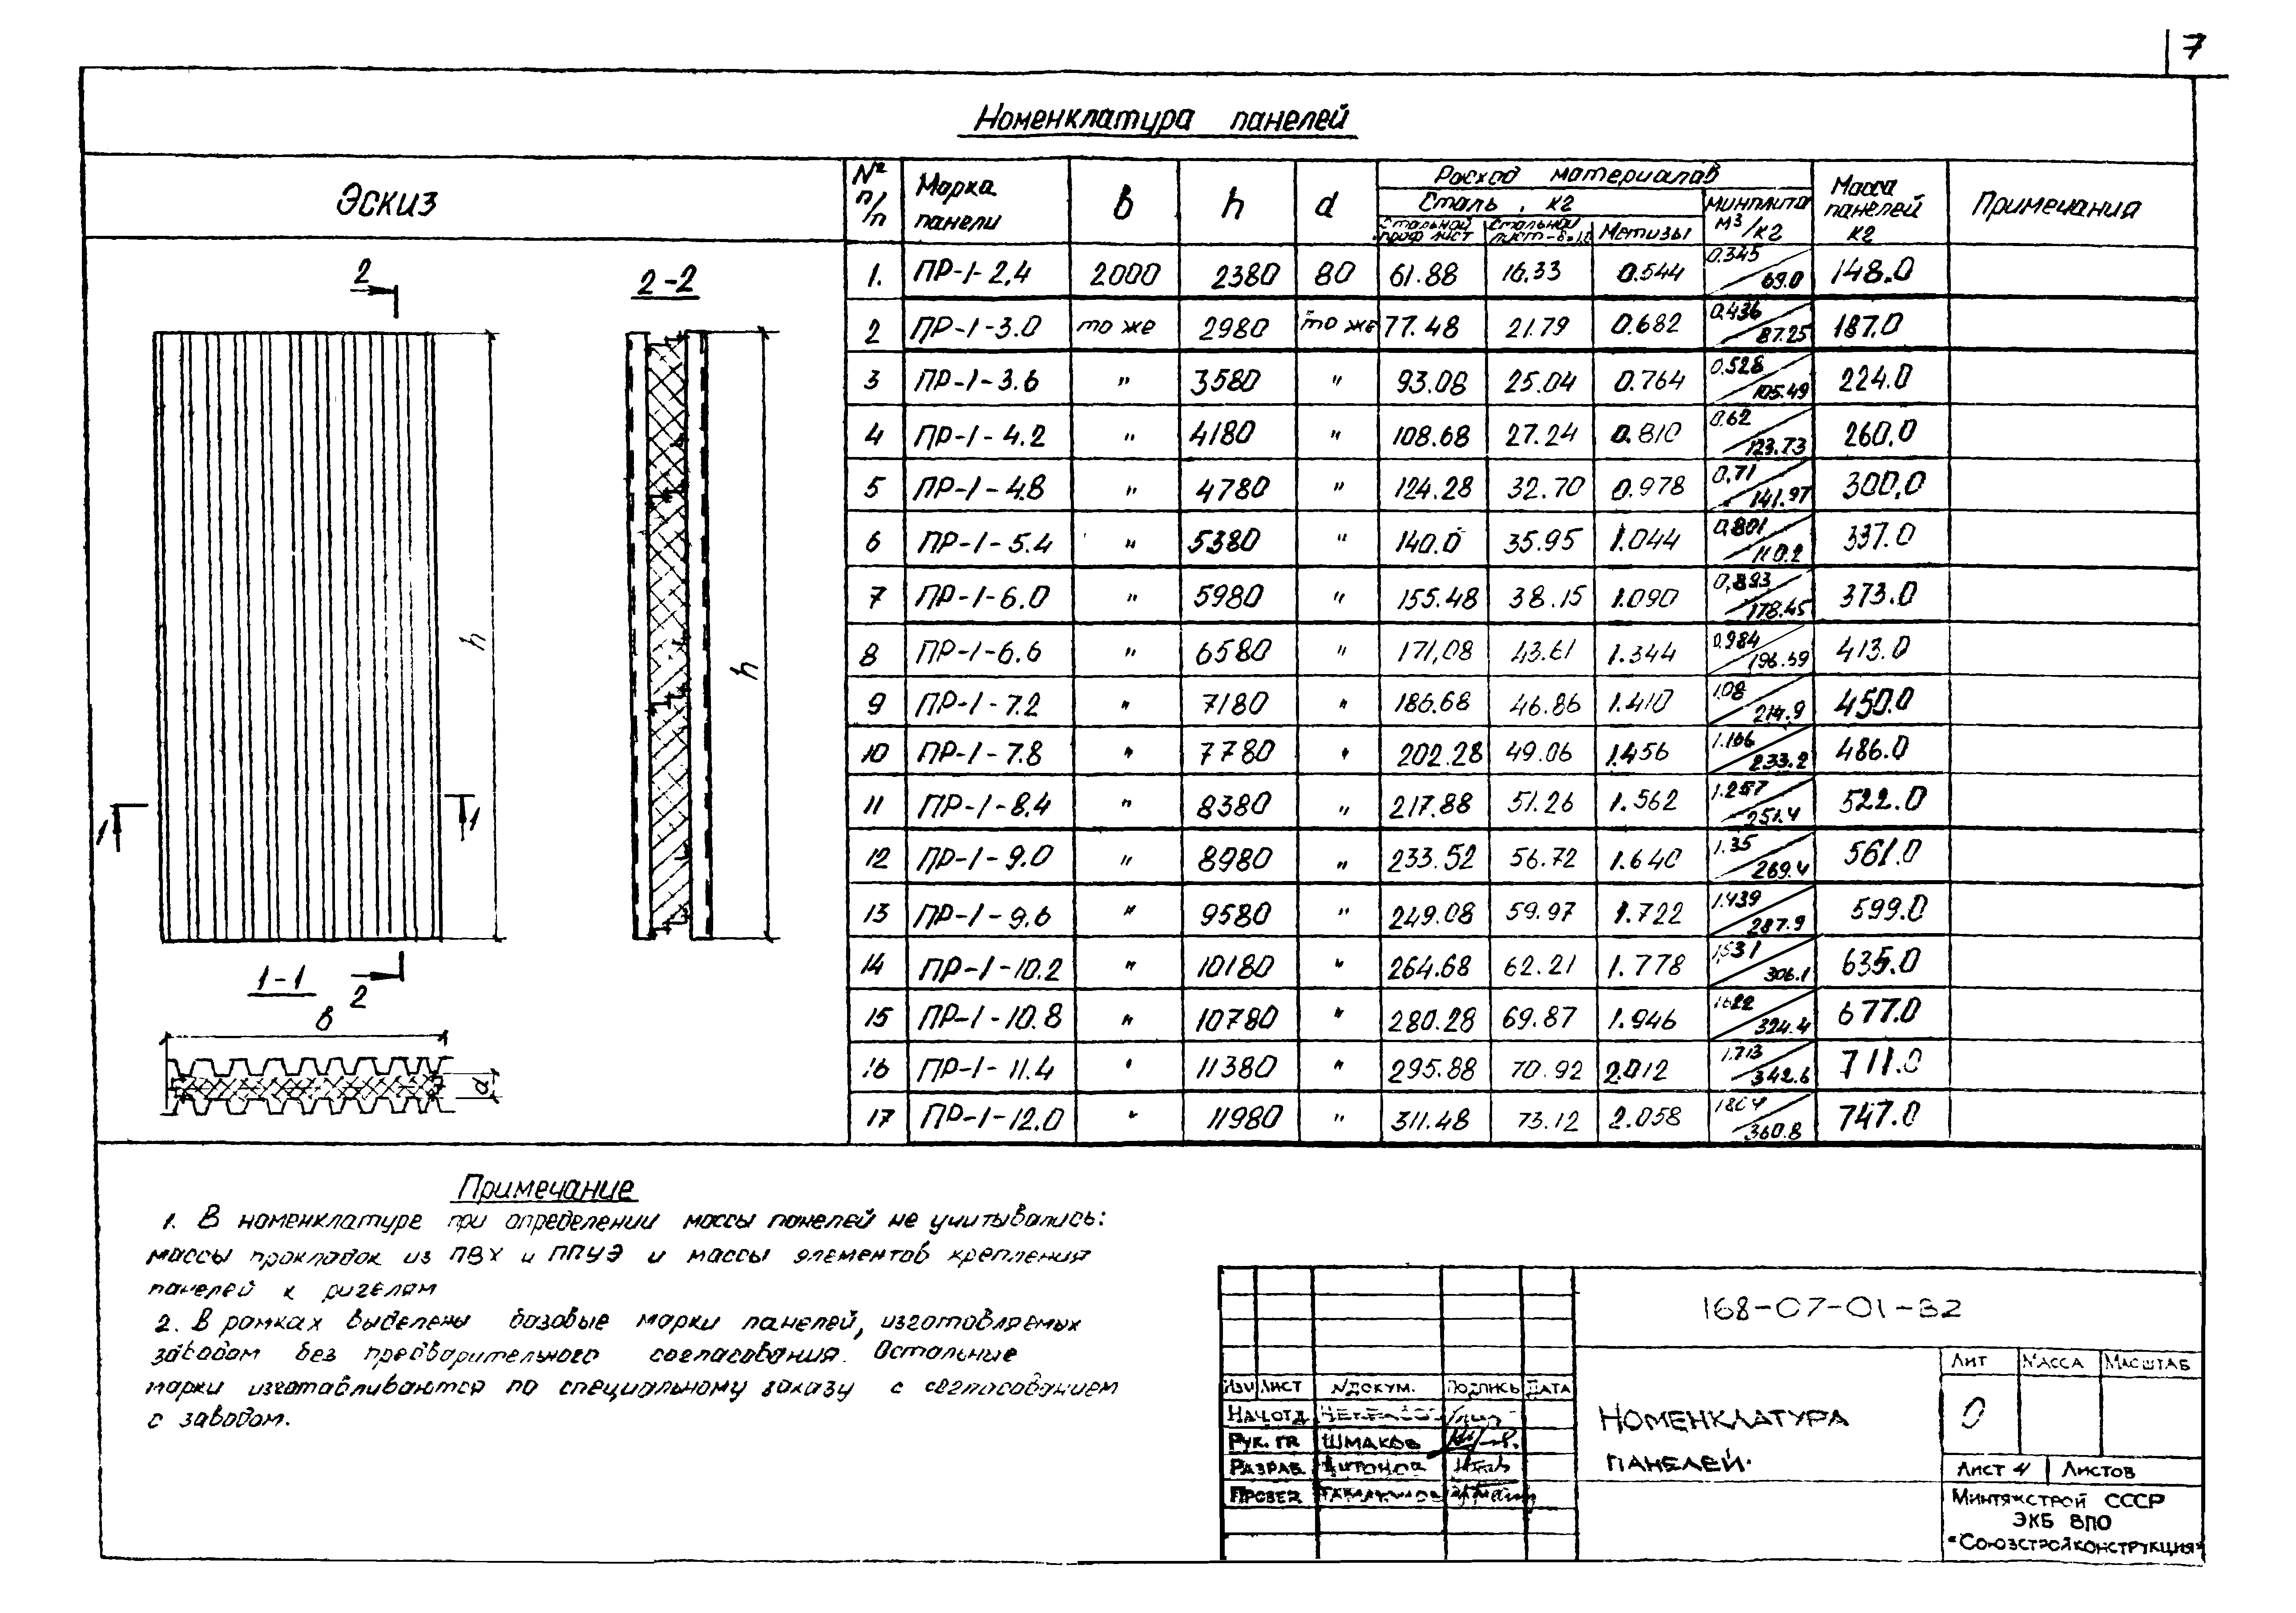 7
Номенклатура панелей
Эскиз
№ п/п Марка панели в h d Расход материалов Масса панелей кг Примечания
Сталь, кг Минплита м³/кг
Стальной проф лист Стальной Метизы
1. ПР-1-2,4 2000 2380 80 61.88 16.33 0.544 0.345/69.0 148.0
2 ПР-1-3.0 то же 2980 то же 77.48 21.79 0.682 0.436/87.25 187.0
3 ПР-1-3.6 " 3580 " 93.08 25.04 0.764 0.528/105.49 224.0
4 ПР-1-4.2 " 4180 " 108.68 27.24 0.810 0.62/123.73 260.0
5 ПР-1-4.8 " 4780 " 124.28 32.70 0.978 0.71/141.97 300,0
6 ПР-1-5.4 " 5380 " 140.0 35.95 1.044 0.801/110.2 337.0
7 ПР-1-6.0 " 5980 " 155.48 38.15 1.090 0,893/178.45 373.0
8 ПР-1-6.6 " 6580 " 171,08 43.61 1.344 0.984/196.59 413.0
9 ПР-1-7.2 " 7180 " 186.68 46.86 1.410 1.08/214.9 450.0
10 ПР-1-7.8 " 7780 " 202.28 49.06 1.456 1.166/233.2 486.0
11 ПР-1-8,4 " 8380 " 217.88 51.26 1.562 1.257/251.4 522.0
12 ПР-1-9.0 " 8980 " 233.52 56.72 1.640 1.35/269.4 561.0
13 ПР-1-9.6 " 9580 " 249.08 59.97 1.722 1.439/287.9 599.0
14 ПР-1-10.2 " 10180 " 264.68 62.21 1.778 1,531/306.1 635.0
15 ПР-1-10.8 " 10780 " 280.28 69.87 1.946 1622/324.4 677.0
16 ПР-1-11.4 " 11380 " 295.88 70.92 2.012 1.713/342.6 711.0
17 ПР-1-12.0 " 11980 " 311.48 73.12 2.058 1804/360.8 747.0
2
2-2
h
h
1
1
1-1
2
в
d
Примечание
1. В номенклатуре при определении массы панелей не учитывались:
массы прокладок из ПВХ и ППУЭ и массы элементов крепления
панелей к ригелям
2. В рамках выделены базовые марки панелей, изготовляемых
заводом без предварительного согласования. Остальные
марки изготавливаются по специальному заказу с согласованием
с заводом.
168-07-01-В2
Изм Лист №докум. Подпись Дата
Нач.отд
Рук. гр. Шмаков
Разраб.
Провер
Номенклатура
панелей.
Лит Масса Масштаб
О
Лист 4 Листов
Минтяжстрой СССР
ЭКБ ВПО
"Союзстройконструкция"